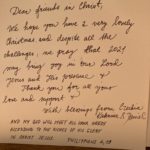 Dear friends in Christ,
We hope you have a very lovely
Christmas and despite all the
challenges, we pray that 2021
may bring you in our Lord
Jesus and His presence
Thank you for all your
love and support
With blessings from,
AND MY GOD WILL MEET ALL YOUR NEEDS
ACCORDING TO THE RICHES OF HIS GLORY
IN CHRIST JESUS. PHILIPPIANS 4:19